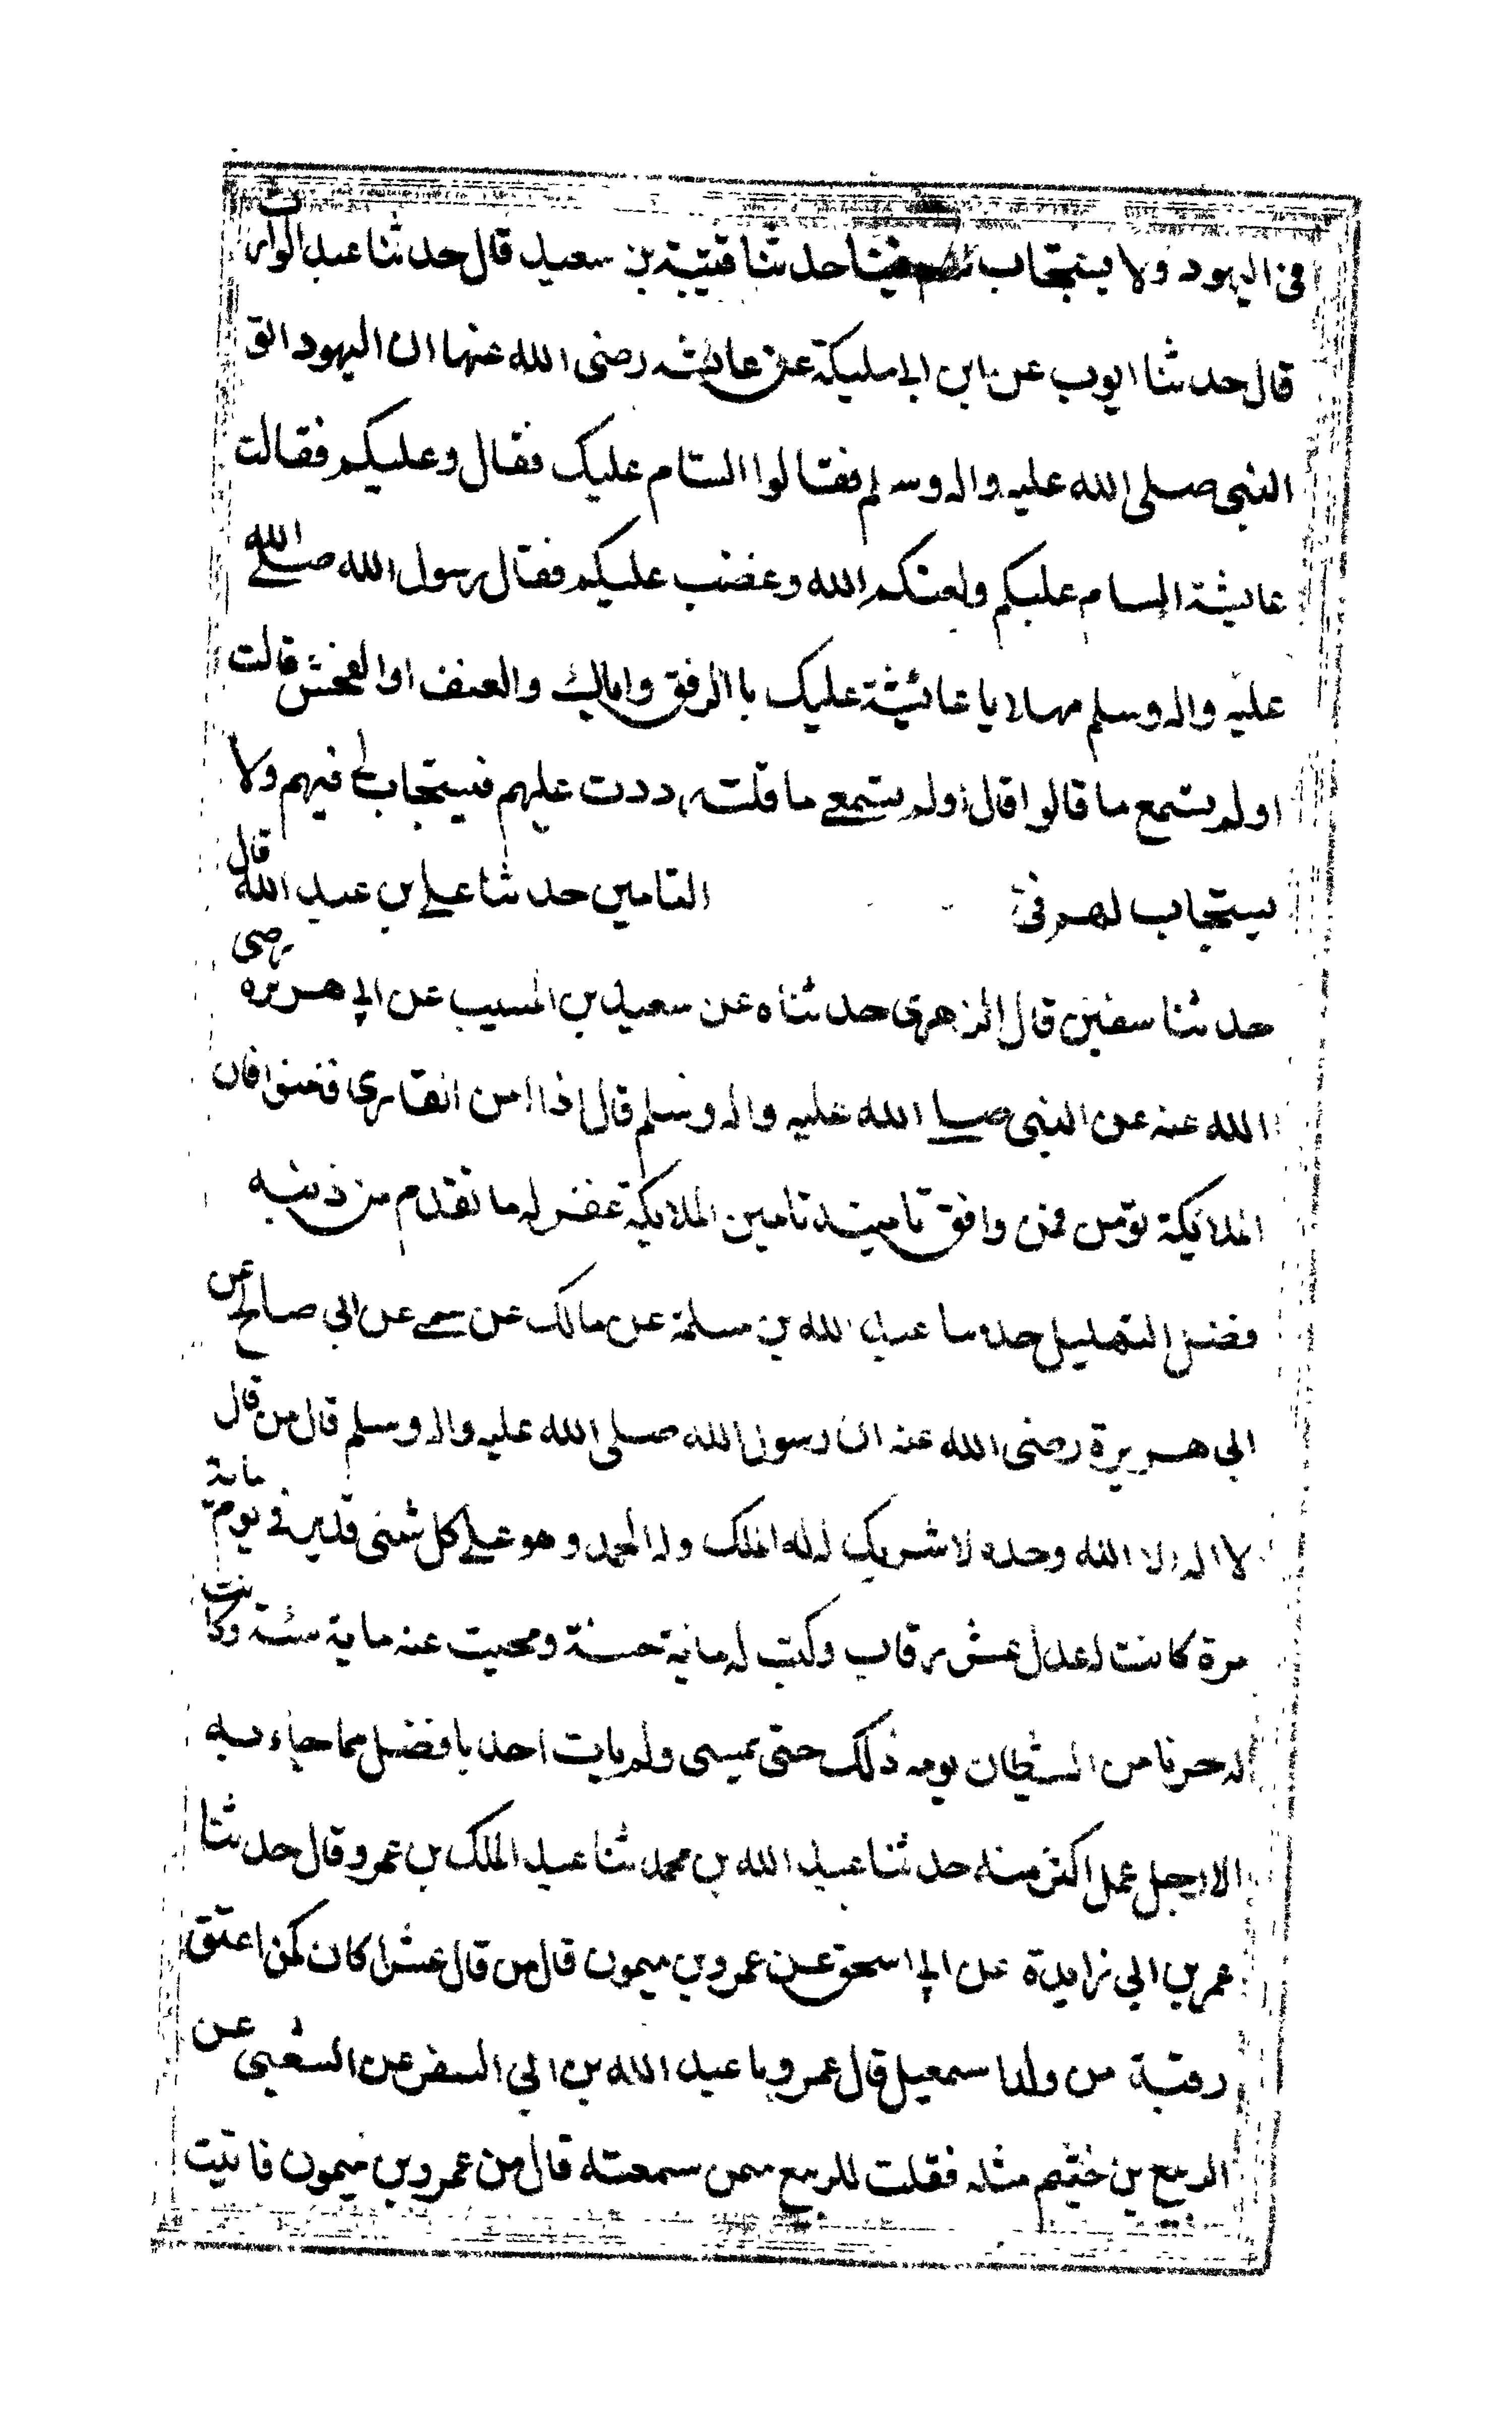 في اليهود ولا يستجاب لهم فينا حدثنا قتيبة بن سعيد قال حدثنا عبد الوارث
قال حدثنا ايوب عن ابن ابي مليكة عن عائشه رضى الله عنها ان اليهود اتو
النبي صلى الله عليه واله وسلم فقالوا السام عليك فقال وعليكم فقالت
عايشة السام عليكم ولعنكم الله وغضب عليكم فقال رسول الله صلى الله
عليه واله وسلم مهلا يا عائشة عليك باالرفق واياك والعنف اوالفحش قالت
اولم يستمع ما قالوا قال اولم يستمعي ما قلت رددت عليهم فيستجاب لي فيهم ولا
يستجاب لهم في التامين حدثنا علي بن عبد الله قال
حدثنا سفين قال الزهري حدثناه عن سعيد بن المسيب عن ابي هريره رضى
الله عنه عن النبي صلى الله عليه واله وسلم قال اذا امن القاري فامنوا فان
الملائكة تؤمن فمن وافق تامينه تامين الملائكة غفر له ما تقدم من ذنبه
فضل التهليل حدثنا عبد الله بن مسلمة عن مالك عن سمي عن ابي صالح عن
ابي هريرة رضى الله عنه ان رسول الله صلى الله عليه واله وسلم قال من قال
لا اله الا الله وحده لا شريك له له الملك وله الحمد وهو على كل شئى قدير في يوم ماية
مرة كانت له عدل عشر رقاب وكتب له ماية حسنة ومحيت عنه ماية سئة وكانت
له حرزا من الشيطان يومه ذلك حتى يمسى ولم يات احد بافضل مما جاء به
الا رجل عمل اكثر منه حدثنا عبد الله بن محمد ثنا عبد الملك بن عمرو قال حدثنا
عمر بن ابي زايدة عن ابي اسحق عن عمرو بن ميمون قال من قال عشرا كان كمن اعتق
رقبة من ولد اسمعيل قال عمرو با عبد الله بن ابي السفر عن الشعبى عن
الربيع بن خثيم مثله فقلت للربيع ممن سمعته قال من عمرو بن ميمون فاتيت